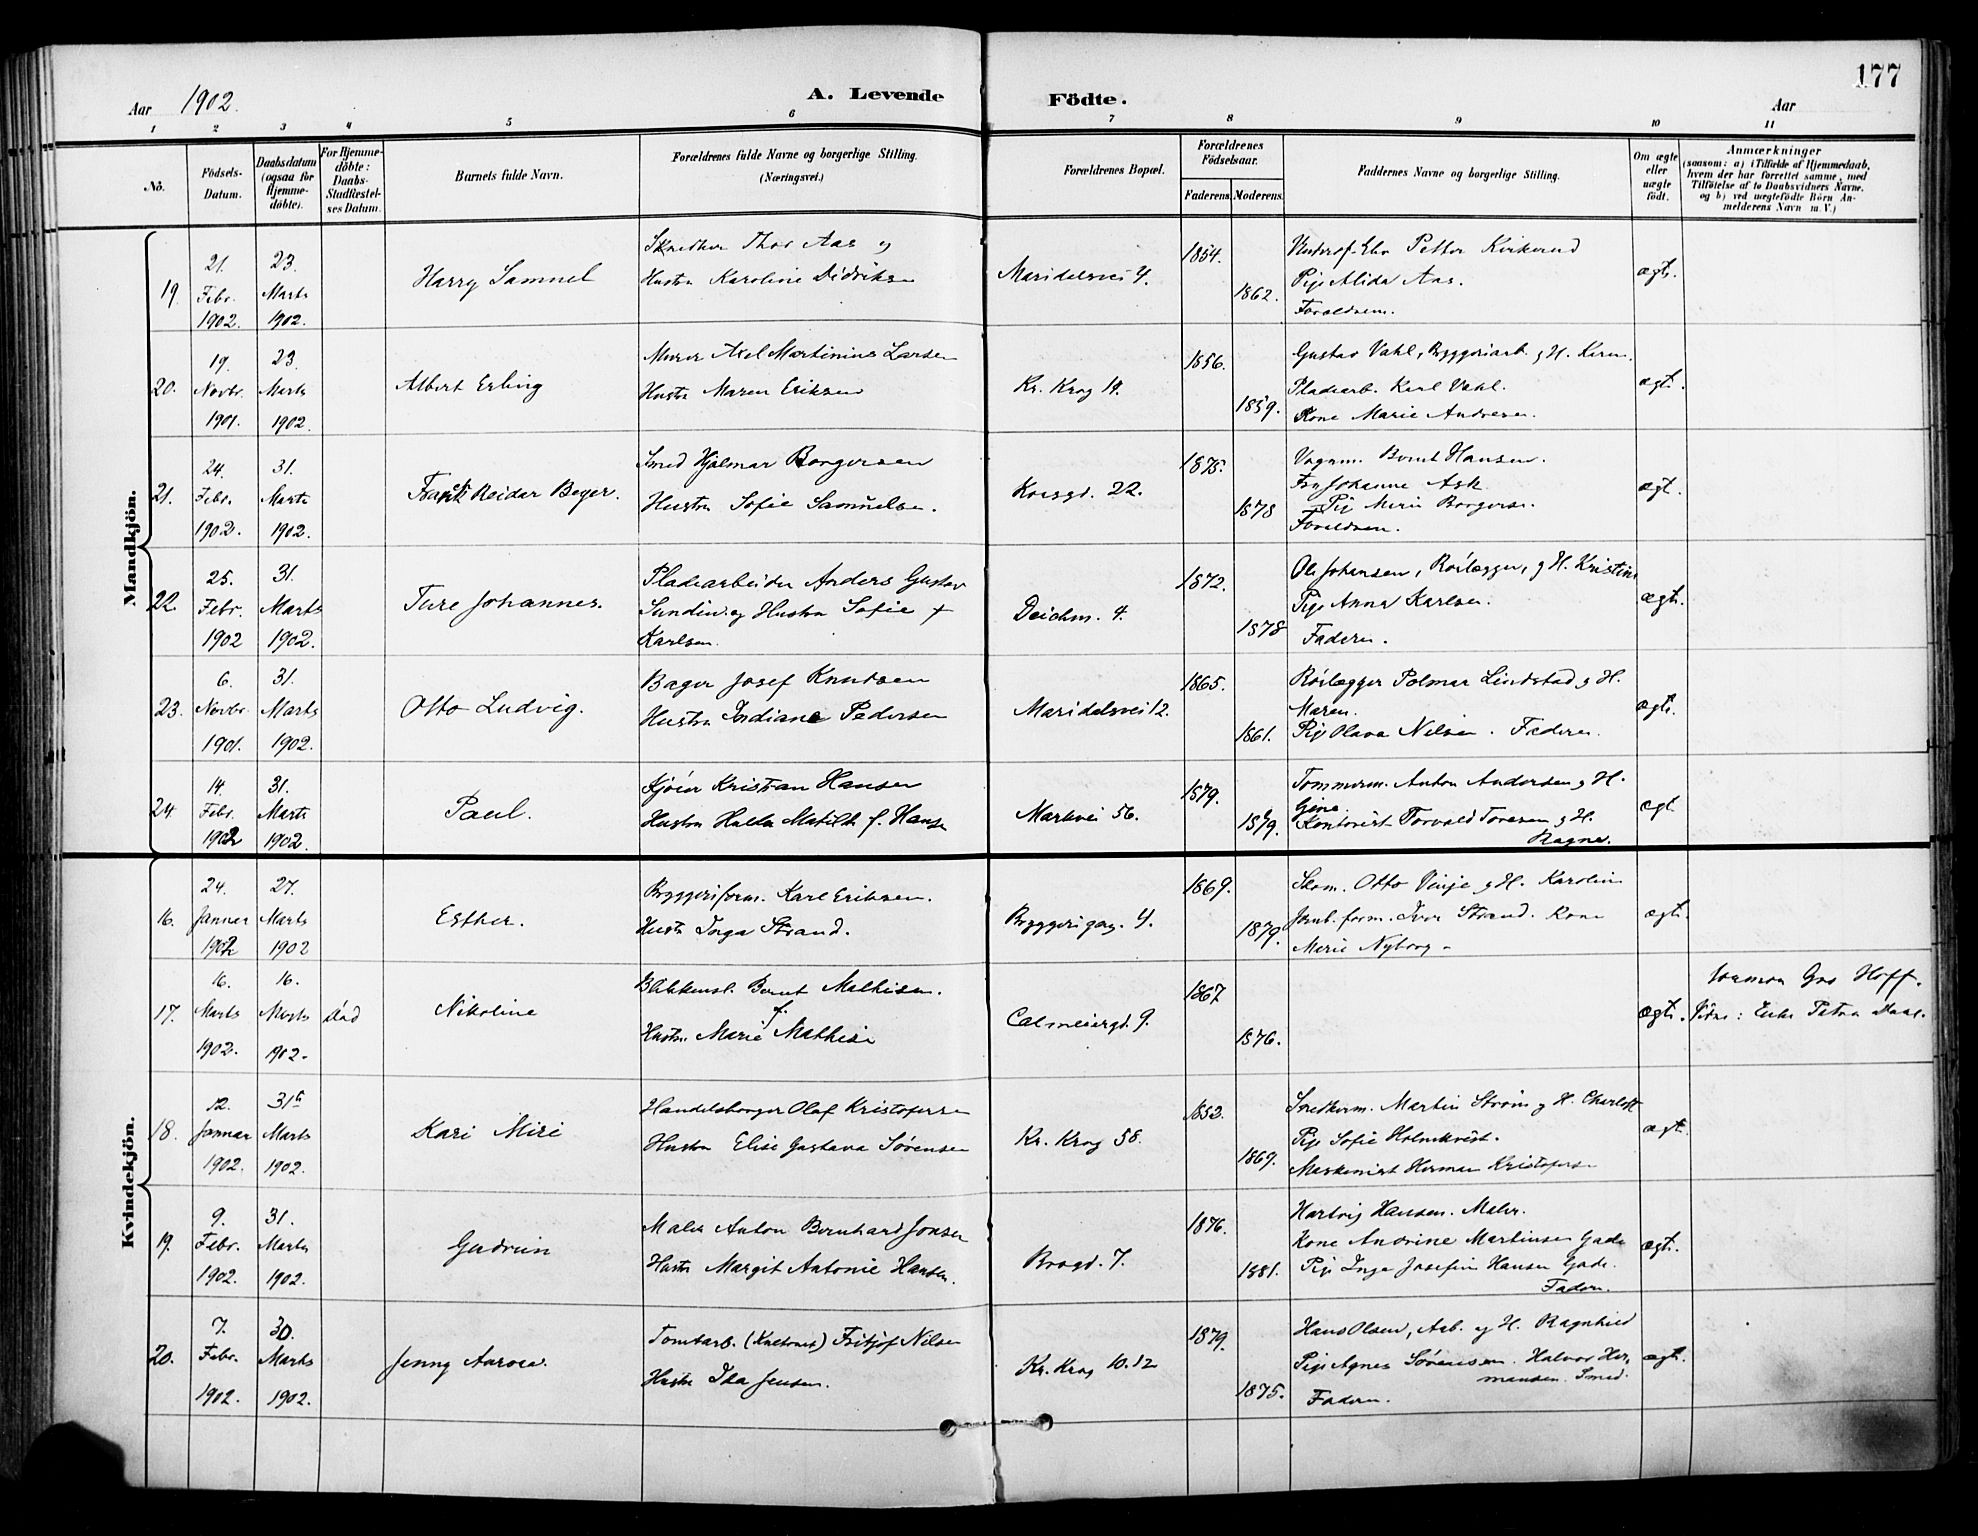 177
Aar 1902. A. Levende Födte. Aar
1 2 3 4 5 6 7 8 9 10 11
No. Födsels-Datum. Daabsdatum (ogsaa for Hjemme-döbte). For Hjemme-döbte: Daabs-Stadfæstel-ses Datum. Barnets fulde Navn. Forældrenes fulde Navne og borgerlige Stilling. (Næringsvei.) Forældrenes Bopæl. Forældrenes Födselsaar. Faderens. Moderens. Faddernes Navne og borgerlige Stilling. Om ægte eller uægte födt. Anmærkninger (saasom: a) i Tilfælde af Hjemmedaab, hvem der har forrettet samme, med Tilföielse af to Daabsvidners Navne. og b) ved uægtefödte Börn An-melderens Navn m. V.)
Mandkjön.
19. 21. Febr. 1902. 23. Marts 1902.
Harry Samuel
Thor Aas og
Hustru Karoline Didriksen
Maridalsvei 4. 1854. 1862.
Petter Kirkerud
Pige Alida Aas.
Forældrene.
ægte.
20. 19. Novbr. 1901. 23. Marts 1902.
Albert Erling
Murer Axel Martinius Larsen
Hustru Maren Eriksen
Kr. Krog 19. 1856. 1859.
Gustav Vahl, Bryggeriarb. og H. Karen.
Pladsarb. Karl Vahl.
Kone Marie Andresen.
ægt.
21. 24. Febr. 1902. 31. Marts 1902.
Frank Reidar Beyer.
Smed Hjalmar Borgersen
Hustru Sofie Samuelsen.
Korsgd. 22. 1875. 1878
Vognm. Bernt Hansen.
Fru Johanne Ask
Pige Marie Borgersen.
Forældrene.
ægt.
22. 25. Febr. 1902 31. Marts 1902.
Ture Johannes.
Pladsarbeider Anders Gustav
Sundin og Hustru Sofie
Karlsen.
Deichm. 4. 1872. 1878
Ole Johansen, Rörlægger, og H. Kristine
Pige Anna Karlsen.
Faderen.
ægt.
23. 6. Novbr. 1901. 31. Marts 1902.
Otto Ludvig.
Bager Josef Knudsen
Hustru Indiane Pedersen
Maridalsvei 12. 1865. 1861.
Rörlægger Polmar Lindstad og H.
Maren.
Pige Olava Nilsen. Faderen.
ægt.
24. 14. Febr. 1902 31. Marts 1902.
Paul.
Kjører Kristian Hansen
Hustru Hulda Matilde f. Hansen
Markvei 56. 1879. 1879.
Tømmerm. Anton Andersen og H.
Gina.
Kontorist Torvald Toresen og H.
Ragna.
ægt.
Kvindekjön.
16. 24. Januar 1902 27. Marts 1902
Esther.
Bryggeriform. Karl Eriksen.
Hustru Inga Strand.
Bryggerigang. 4. 1869. 1879.
Skom. Otto Vinje og H. Karoline
Jernb. form. Ivar Strand. Kone
Marie Nyborg.
ægt.
17. 16. Marts 1902. 16. Marts 1902. død
Nikoline
Blikkensl. Bernt Mathisen.
Hustru Marie f. Mathisen
Calmeiersgd. 9. 1867 1876.
ægt.
Hoff.
Enke Petra
18. 12. Januar 1902. 31 Marts 1902.
Kari Miri
Handelsborger Olaf Kristofersen
Hustru Elise Gustava Sørensen
Kr. Krog 58. 1853. 1869.
Snedkerm. Martin Strøm og H. Charlotte
Pige Sofie Holmkvist.
Maskinist Herman Kristofersen
ægt.
19. 9. Febr. 1902. 31. Marts 1902.
Gudrun
Maler Anton Bernhard Jonsen
Hustru Margit Antonie Hansen.
Brogd. 7. 1876. 1881.
Hartvig Hansen. Maler.
Kone Andrine Martinsen Gade
Pige Inga Josefine Hansen Gade.
Faderen.
ægt.
20. 7. Febr. 1902. 30. Marts 1902.
Jenny Aurora.
Tomtarb. Fritjof Nilsen
Hustru Ida Jensen.
Kr. Krog 10.12 1879. 1875.
Hans Olsen, Arb. og H. Ragnhild
Pige Agnes Sørensen. Halvor Her-
mansen. Smed.
Faderen.
ægt.